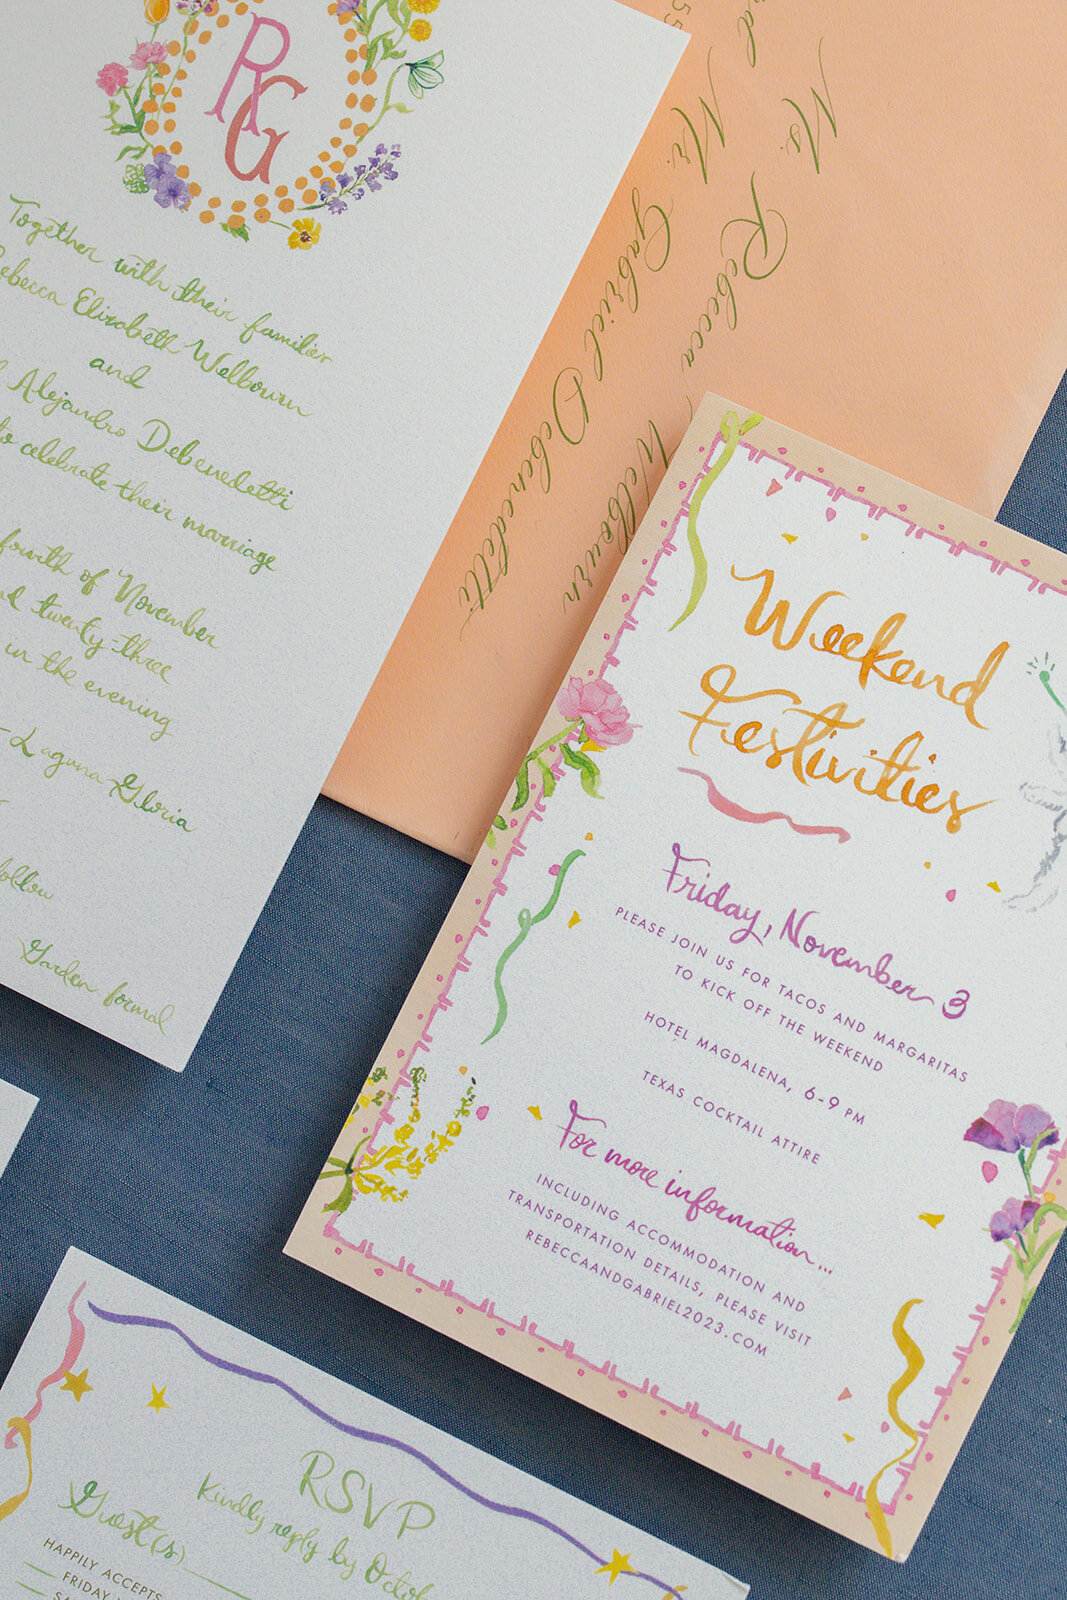 RG
Together with their families
Rebecca Elizabeth Welbourn
and
Alejandro Debenedetti
to celebrate their marriage
fourth of November
twenty-three
in the evening
Laguna Gloria
follow
Garden formal
Ms. Rebecca Welbourn
Mr. Gabriel Debenedetti
Weekend
Festivities
Friday, November 3
PLEASE JOIN US FOR TACOS AND MARGARITAS
TO KICK OFF THE WEEKEND
HOTEL MAGDALENA, 6-9 PM
TEXAS COCKTAIL ATTIRE
For more information...
INCLUDING ACCOMMODATION AND
TRANSPORTATION DETAILS, PLEASE VISIT
REBECCAANDGABRIEL2023.COM
RSVP
Kindly reply by Octob
Guest(s)
HAPPILY ACCEPTS
FRIDAY